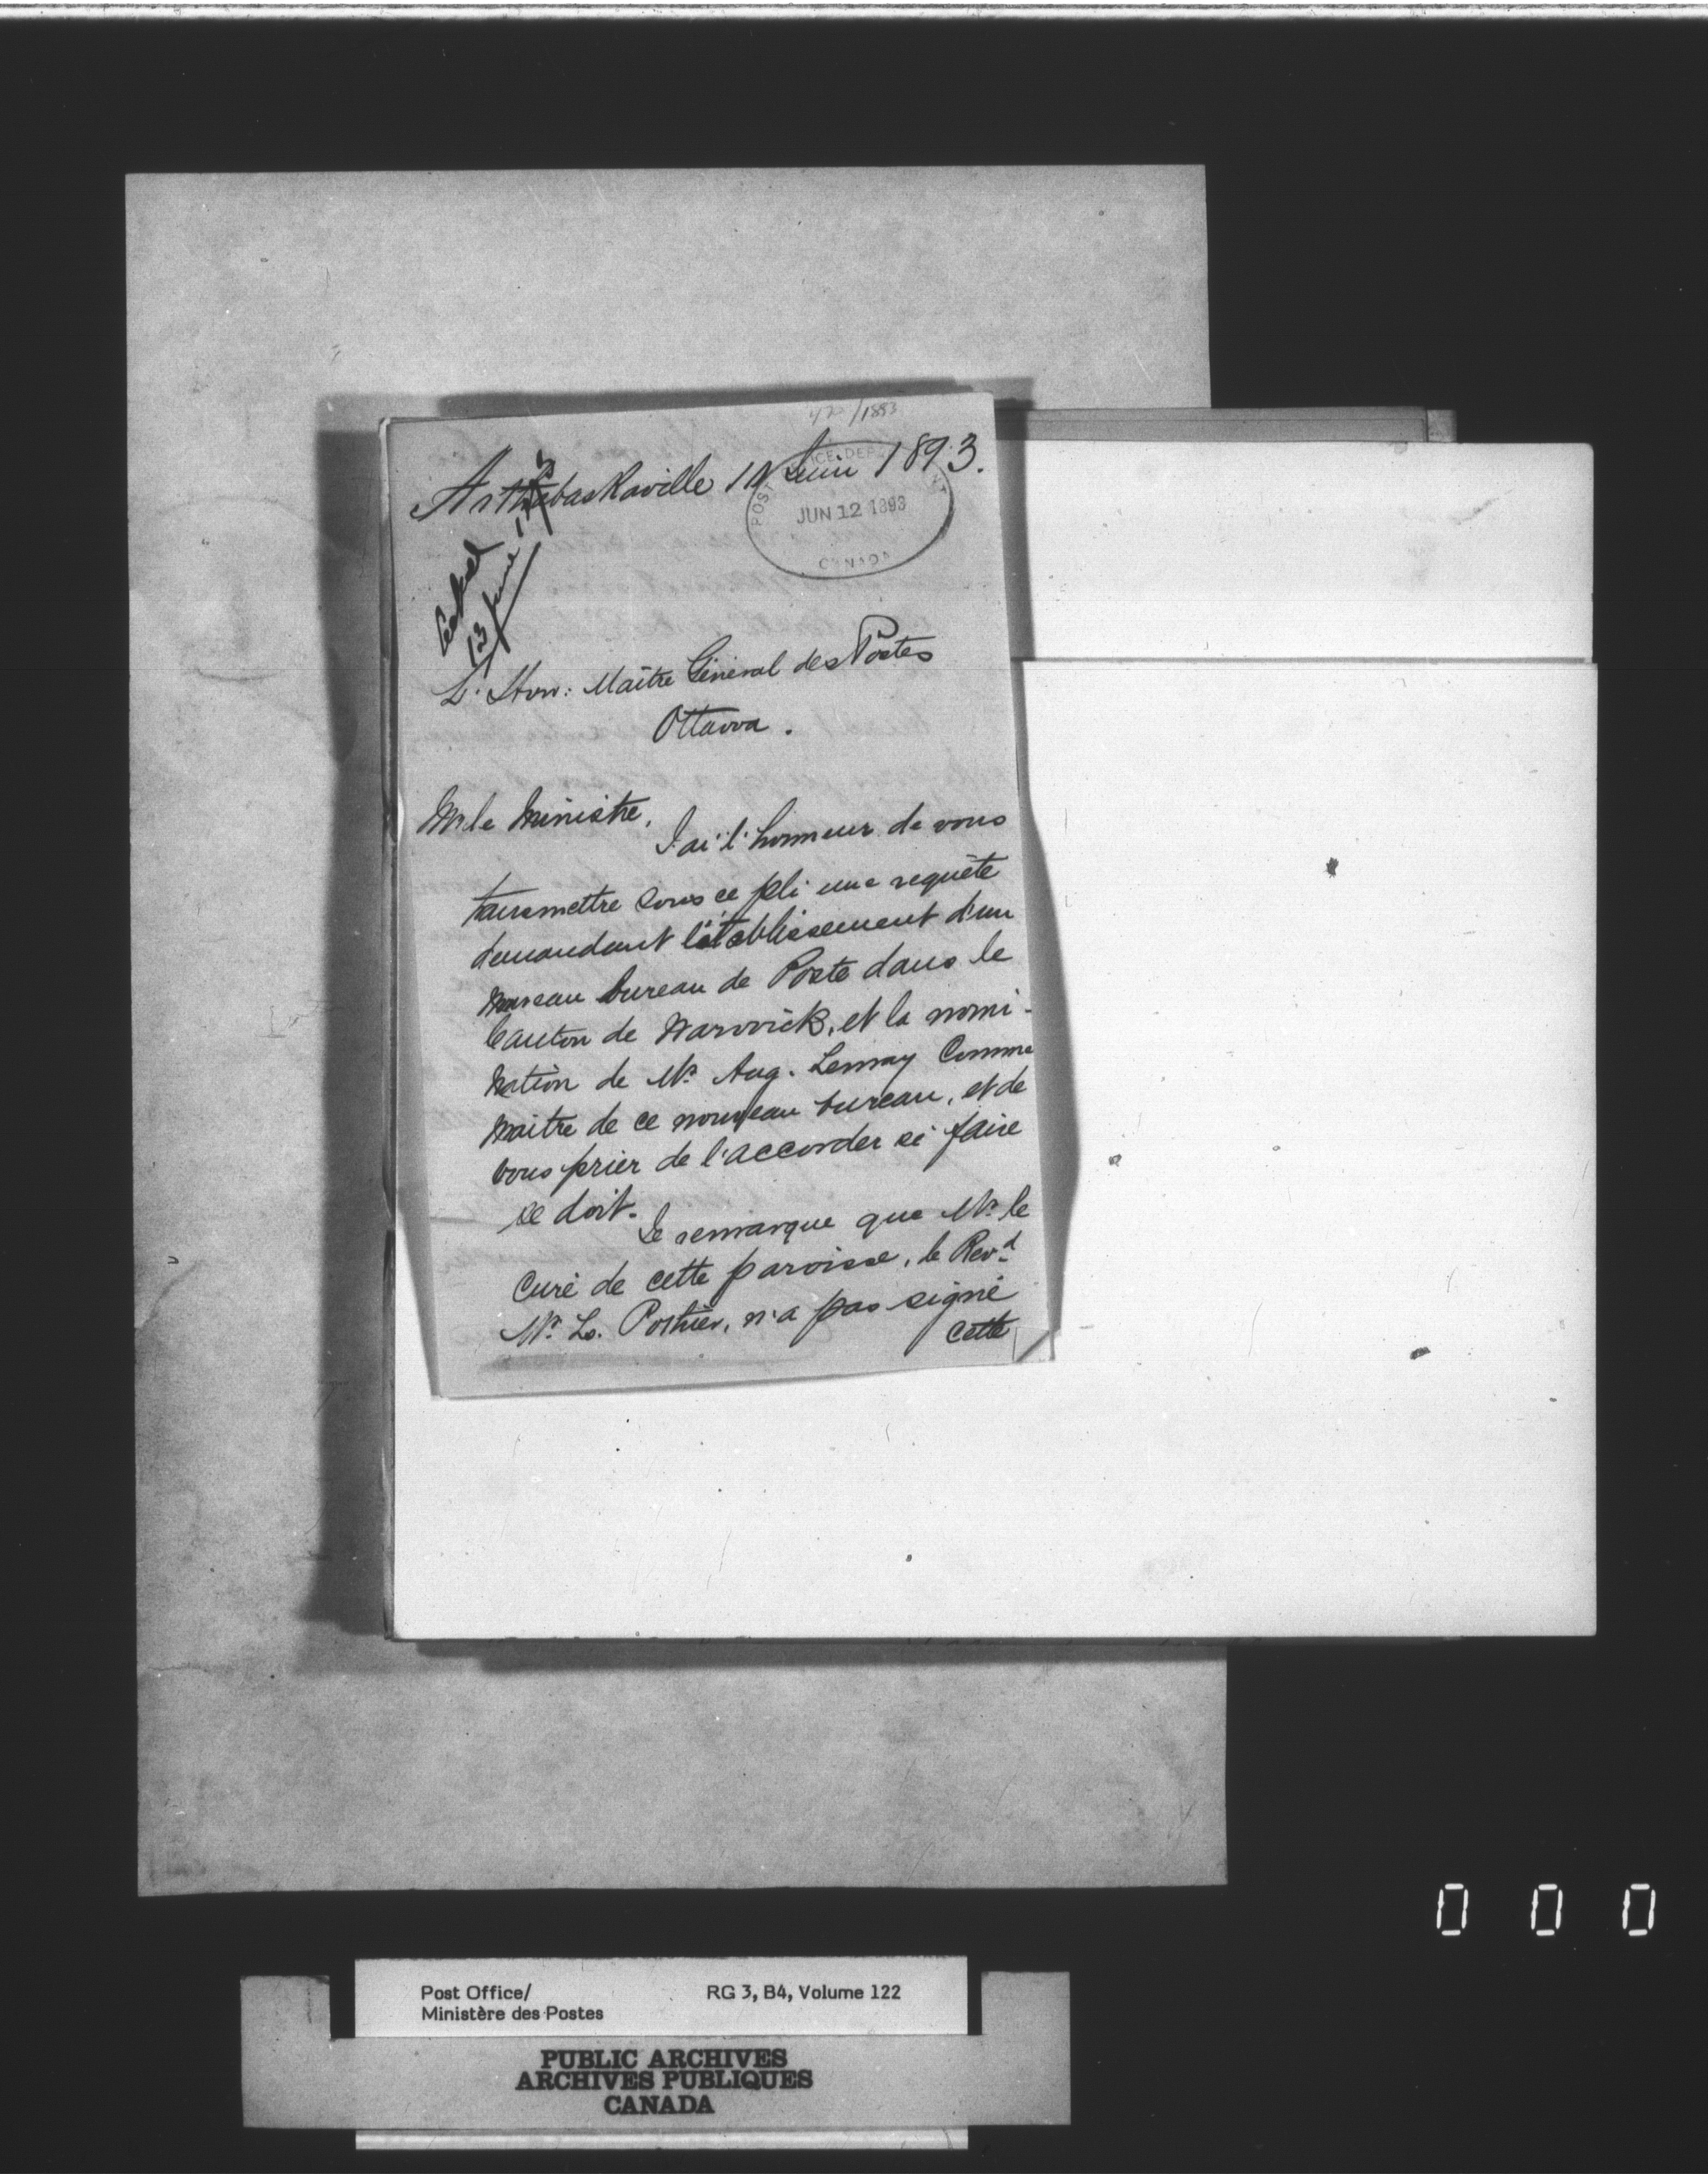 /1893
Arthabaskaville 10 Juin 1893.
POST OFFICE DEP
JUN 12 1893
CANADA
13 June
L'Hon: Maître Général des Postes
Ottawa.
Mr le Ministre,
J'ai l'honneur de vous
transmettre sous ce pli une requête
demandant l'établissement d'un
nouveau bureau de Poste dans le
Canton de Warwick, et la nomi-
nation de Mr. Aug. Lemay Comme
Maitre de ce nouveau bureau, et de
vous prier de l'accorder si faire
se doit.
Je remarque que Mr. le
Curé de cette paroisse, le Revd
Mr. Ls. Pothier, n'a pas signé
cette
0 0 0
Post Office/
Ministère des Postes
RG 3, B4, Volume 122
PUBLIC ARCHIVES
ARCHIVES PUBLIQUES
CANADA